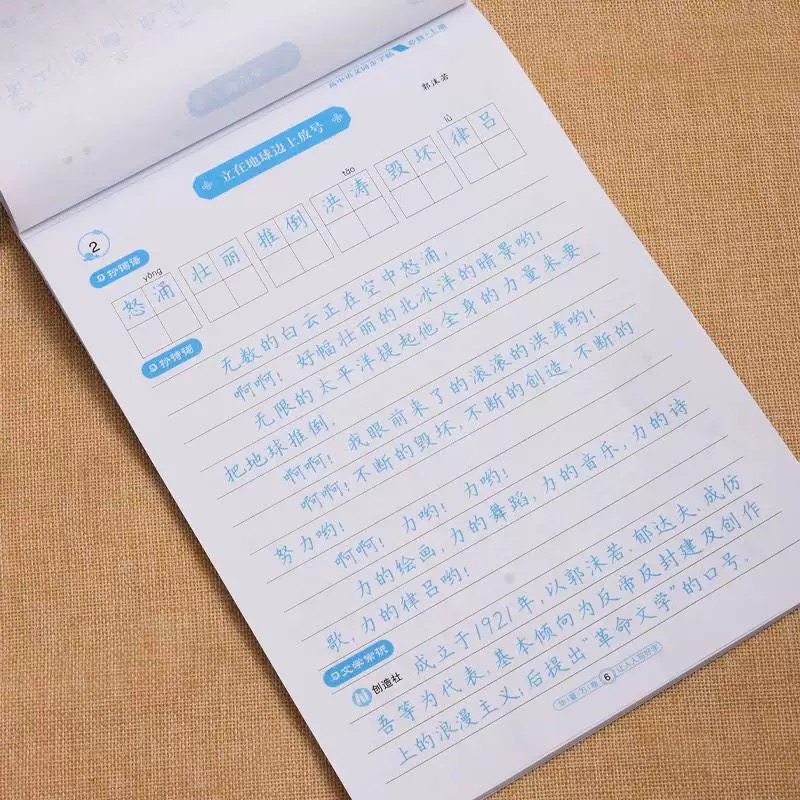 高中语文同步字帖 必修·上册
立在地球边上放号
郭沫若
2
抄词语
yǒng tāo lǜ
怒涌 壮丽 推倒 洪涛 毁坏 律吕
抄诗词
无数的白云正在空中怒涌，
啊啊！好幅壮丽的北冰洋的晴景哟！
无限的太平洋提起他全身的力量来要
把地球推倒。
啊啊！我眼前来了的滚滚的洪涛哟！
啊啊！不断的毁坏，不断的创造，不断的
努力哟！
啊啊！力哟！力哟！
力的绘画，力的舞蹈，力的音乐，力的诗
歌，力的律吕哟！
文学常识
创造社
成立于1921年，以郭沫若、郁达夫、成仿
吾等为代表，基本倾向为反帝反封建及创作
上的浪漫主义；后提出“革命文学”的口号。
6 让人人写好字